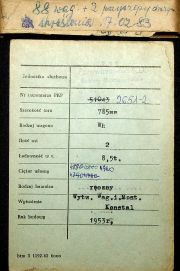 88 wag + 2
skreślenia 7.02.83
Jednostka służbowa
Nr inwentarza PKP 51043 2651-2
Szerokość toru 785mm
Rodzaj wagonu Wh
Ilość osi 2
Ładowność w t. 8,5t.
Ciężar własny
Rodzaj hamulca ręczny
Wytwórnia Wytw. Wag. i Most.
Konstal
Rok budowy 1953r.